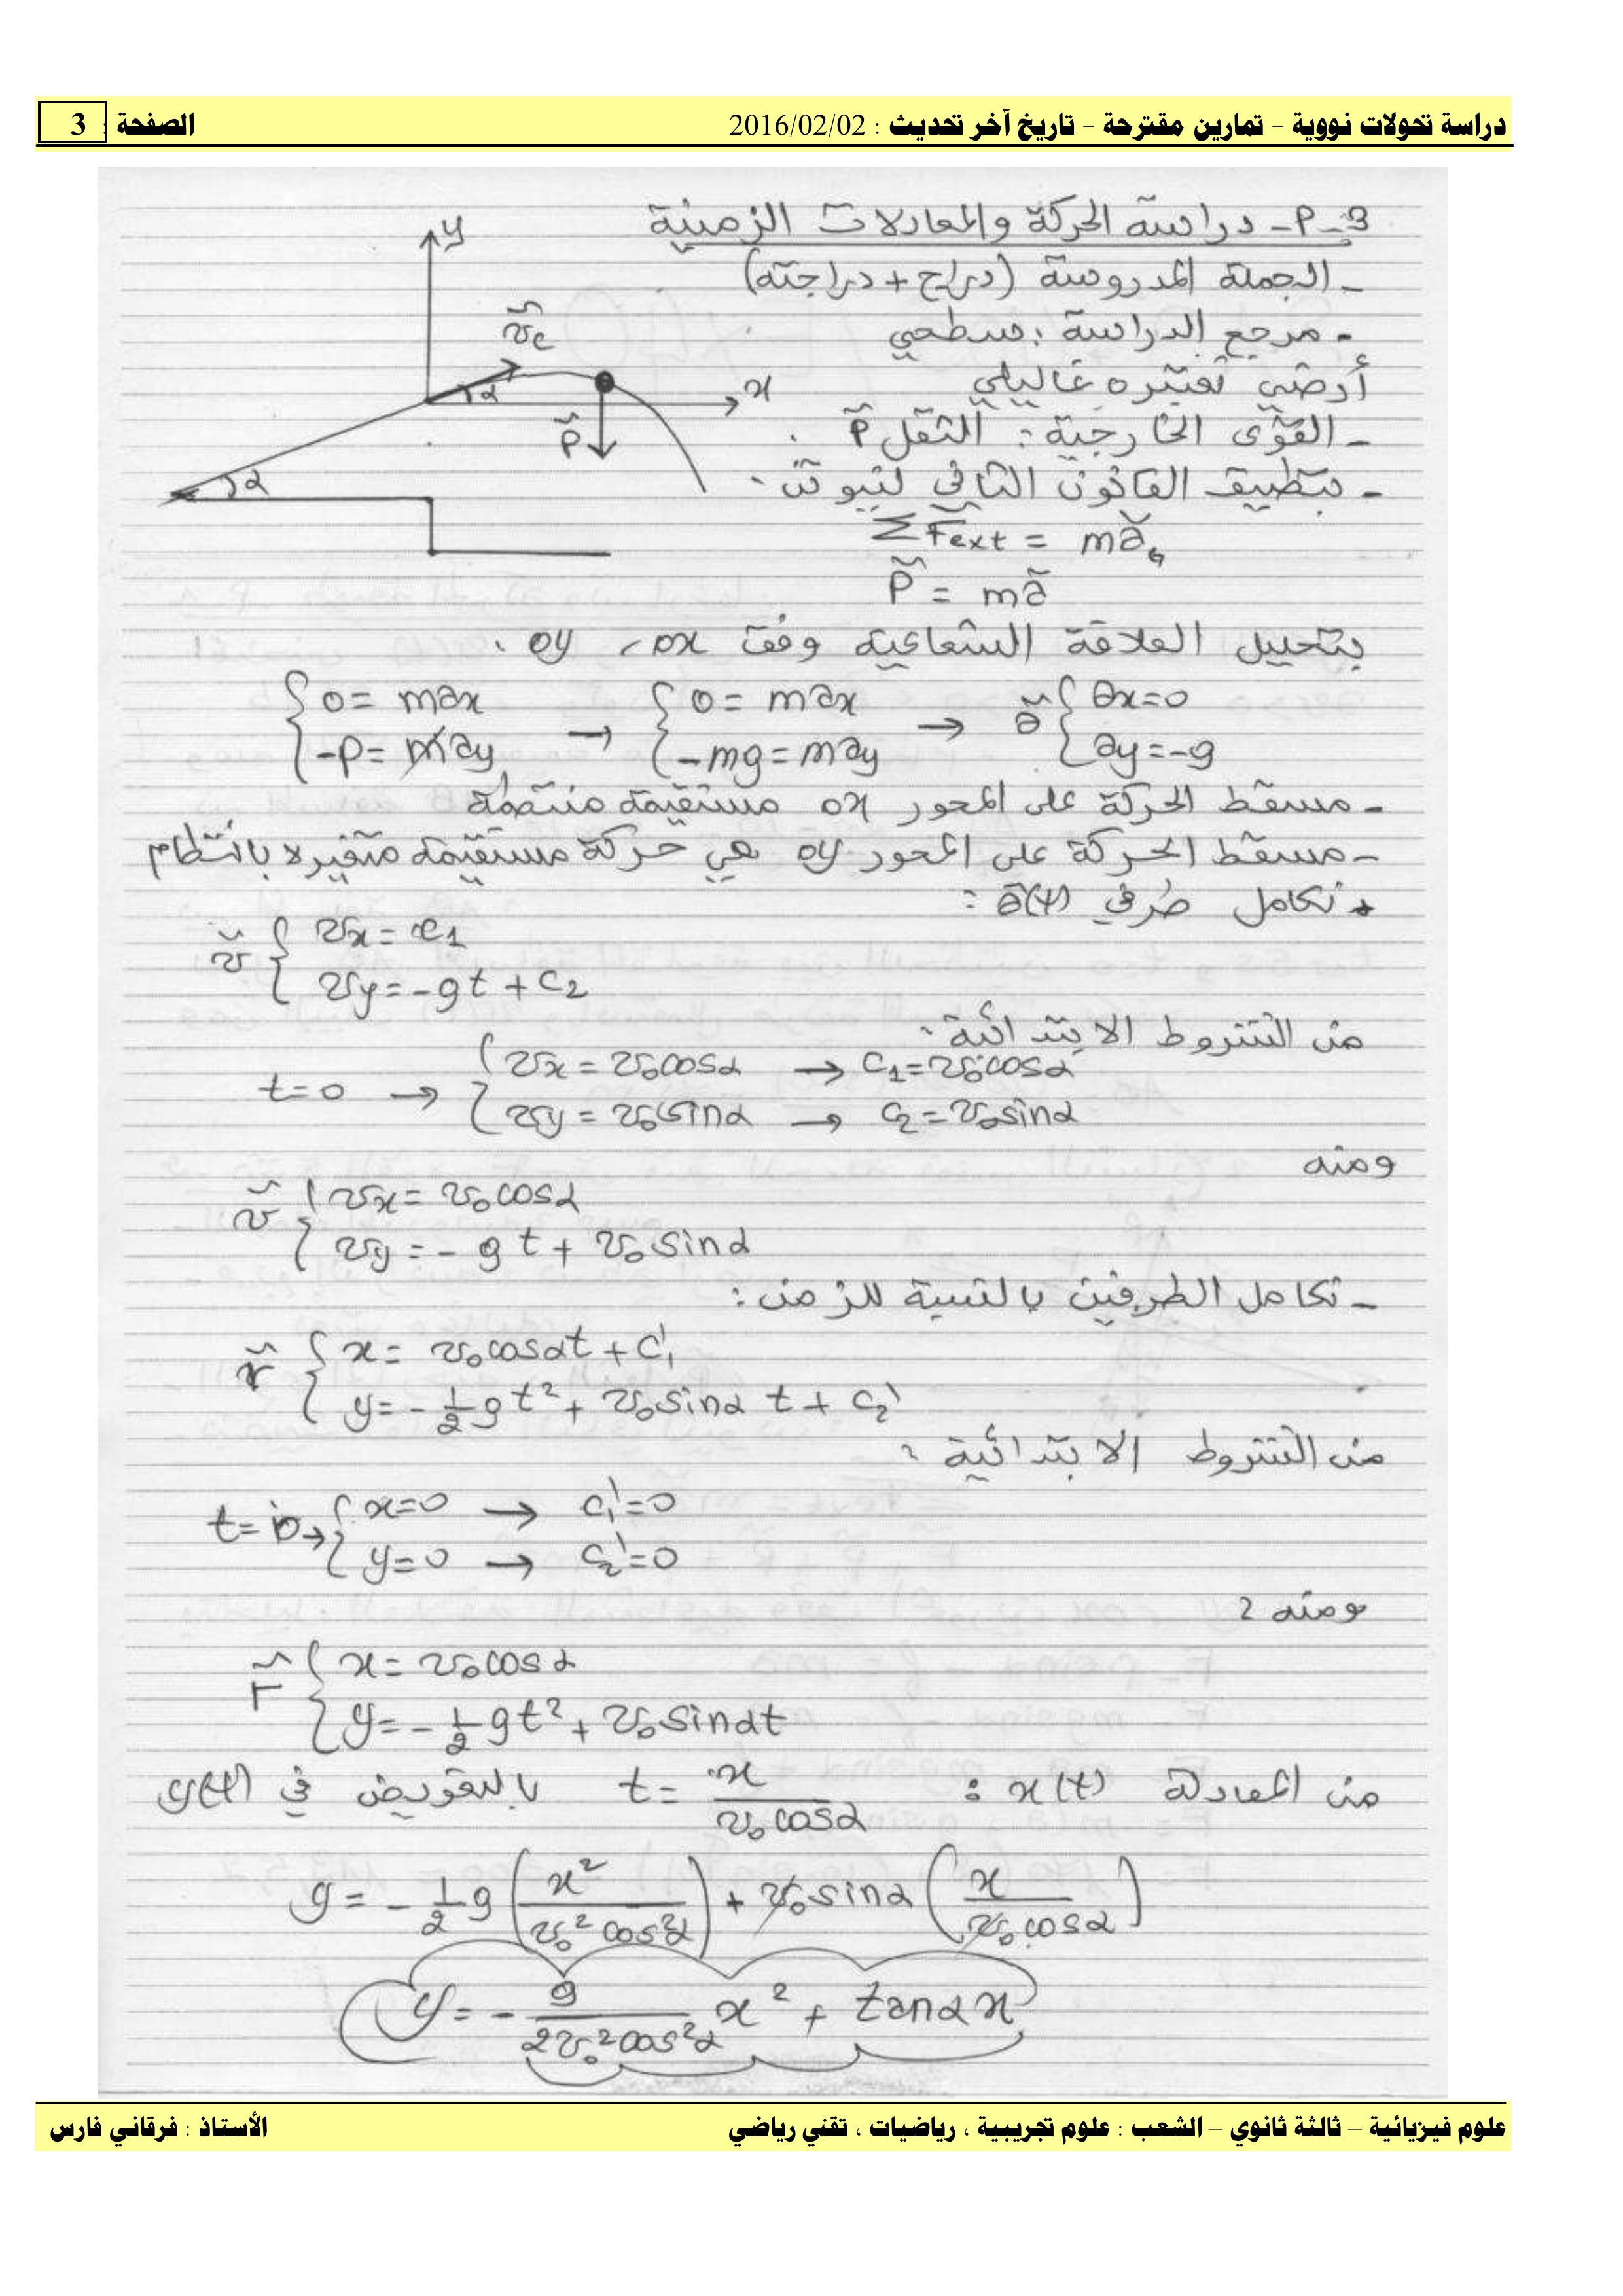 دراسة تحولات نووية – تمارين مقترحة – تاريخ آخر تحديث : 2016/02/02
الصفحة : 3
3-P- دراسة الحركة والمعادلات الزمنية
- الجملة المدروسة (دراج + دراجته)
- مرجع الدراسة : سطحي
أرضي نعتبره غاليلي
- القوى الخارجية : الثقل P
- بتطبيق القانون الثاني لنيوتن :
y
v_c
α
x
P
α
ΣFext = ma_G
P = ma
بتحليل العلاقة الشعاعية وفق ox ، oy .
{ 0 = max → { 0 = max → a { ax=0
{ -P = may { -mg = may { ay=-g
- مسقط الحركة على المحور ox مستقيمة منتظمة
- مسقط الحركة على المحور oy هي حركة مستقيمة متغيرة بانتظام
* نكامل طرفي a(t) :
v { vx = c1
{ vy = -gt + c2
من الشروط الابتدائية :
t=0 → { vx = v0cosα → c1=v0cosα
{ vy = v0sinα → c2=v0sinα
ومنه
v { vx = v0cosα
{ vy = -gt + v0sinα
- نكامل الطرفين بالنسبة للزمن :
r { x = v0cosαt + c'1
{ y = -1/2 gt² + v0sinα t + c2'
من الشروط الابتدائية :
t=0 → { x=0 → c1'=0
{ y=0 → c2'=0
ومنه :
r { x = v0cosα
{ y = -1/2 gt² + v0sinαt
من المعادلة x(t) : t = x / v0cosα بالتعويض في y(t)
y = -1/2 g (x² / v0²cos²α) + v0sinα (x / v0cosα)
y = - g / 2v0²cos²α x² + tanαx
علوم فيزيائية – ثالثة ثانوي – الشعب : علوم تجريبية ، رياضيات ، تقني رياضي
الأستاذ : فرقاني فارس